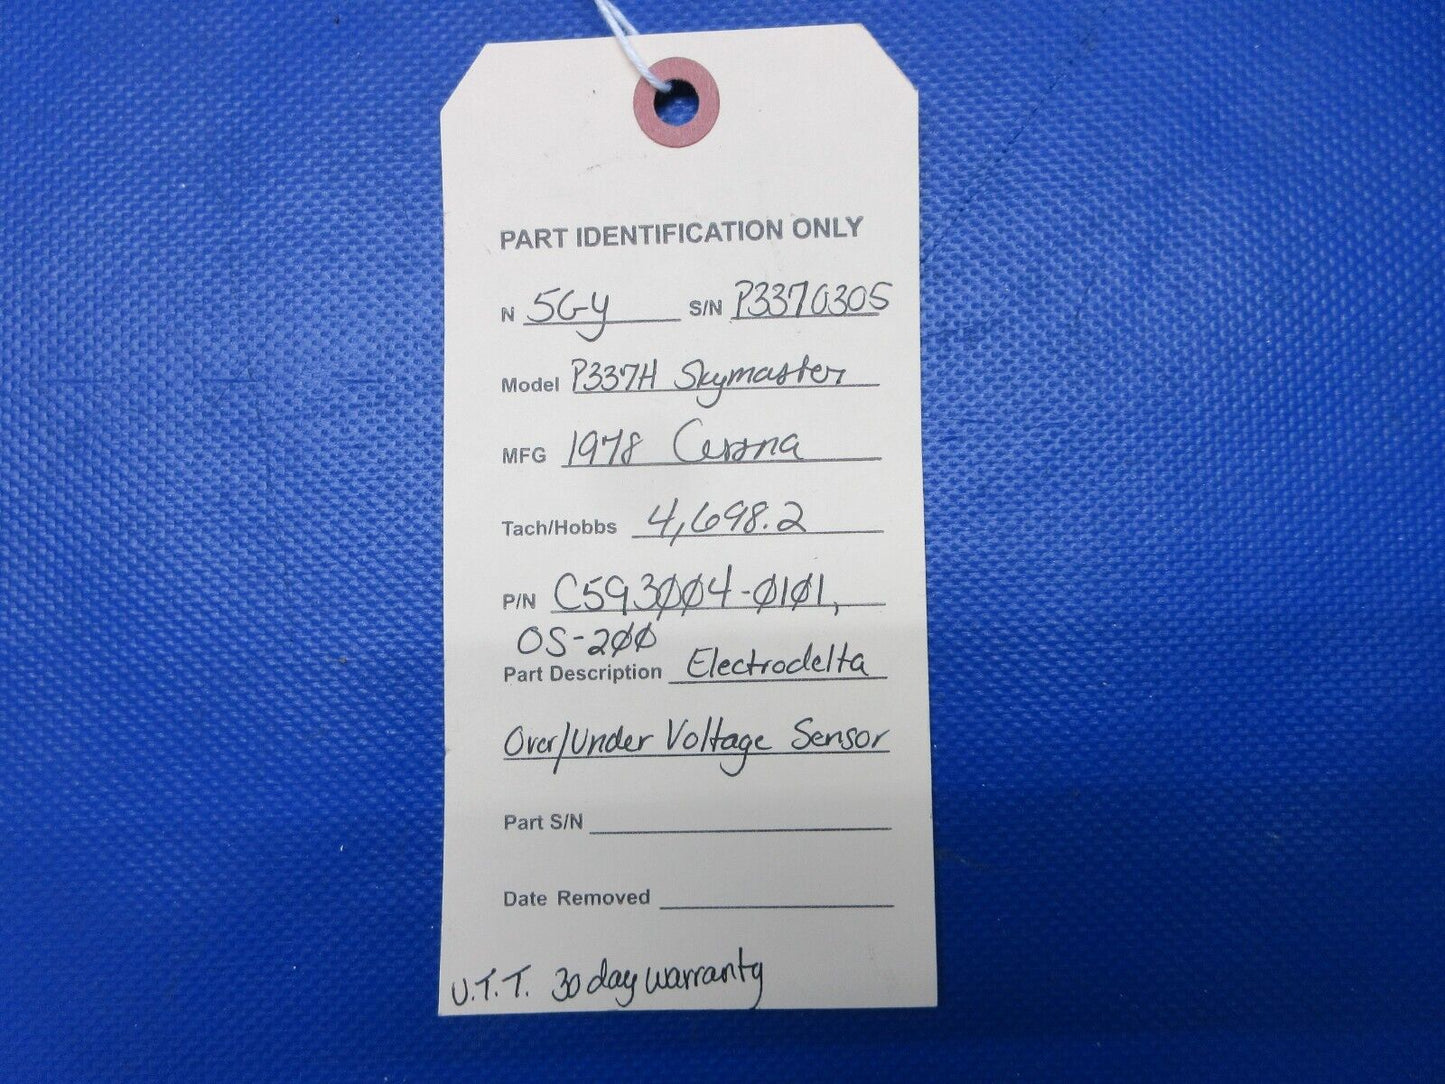 PART IDENTIFICATION ONLY
N 5GY S/N P3370305
Model P337H Skymaster
MFG 1978 Cessna
Tach/Hobbs 4,698.2
P/N C593ØØ4-Ø1Ø1,
OS-2ØØ
Part Description Electrodelta
Over/Under Voltage Sensor
Part S/N
Date Removed
U.T.T. 30 day warranty